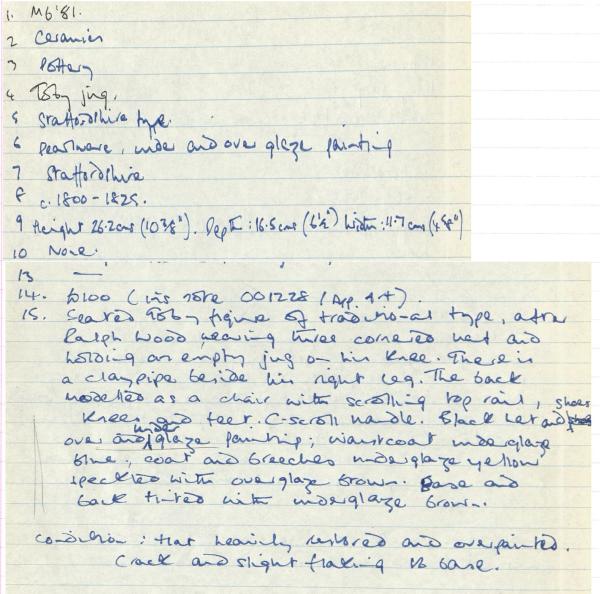 1. M6'81.
2 Ceramics
3 Pottery
4 Toby jug.
5 Staffordshire type.
6 pearlware, under and over glaze painting
7 Staffordshire
8 c. 1800 - 1825.
9 Height 26.2cms (10 3/8"). Depth: 16.5cms (6 1/2") Width: 11.7 cms (4 5/8")
10 None.
13 —
14. £100 (ins note 001228 (App. 4+).
15. Seated Toby figure of traditional type, after
Ralph Wood wearing three cornered hat and
holding an empty jug on his knee. There is
a claypipe beside his right leg. The back
modelled as a chair with scrolling top rail,
knees and feet. C-scroll handle. Black hat and shoes
over and under glaze painting; waistcoat underglaze
blue, coat and breeches underglaze yellow
speckled with overglaze brown. Base and
back tinted with underglaze brown.
Condition: Hat heavily restored and overpainted.
Crack and slight flaking to base.